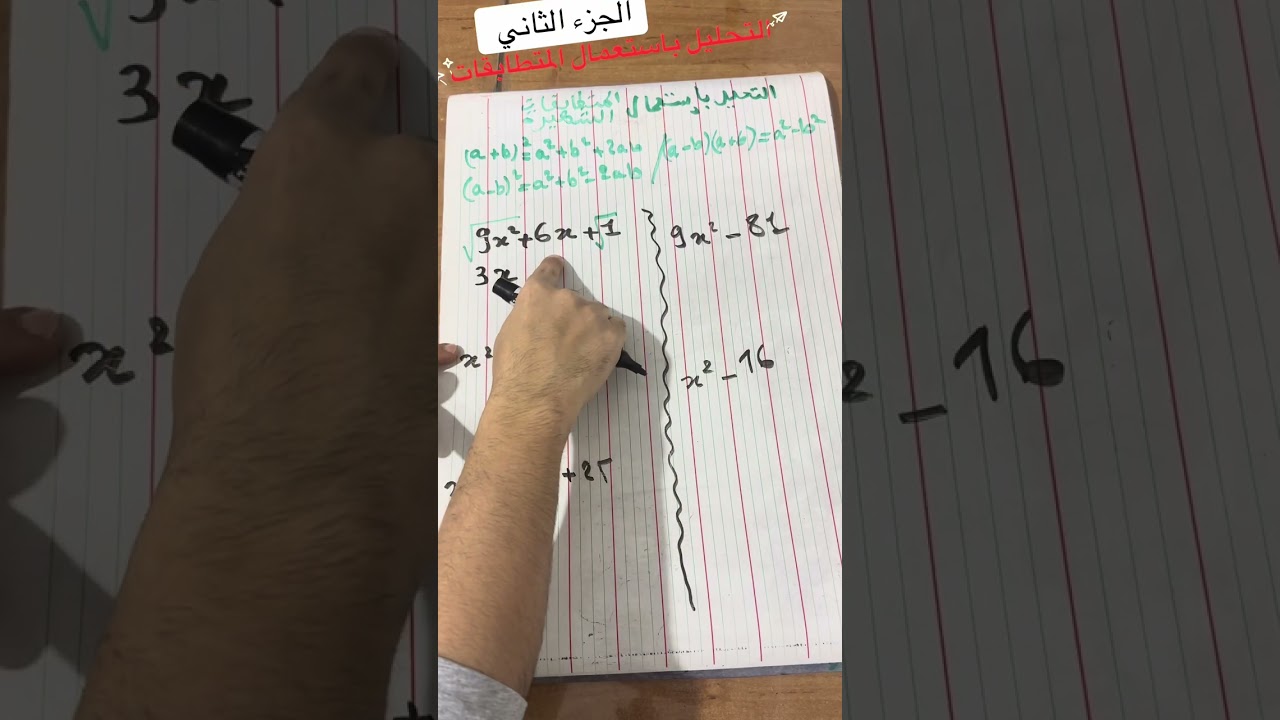 الجزء الثاني
التحليل باستعمال المتطابقات
التحليل بإستعمال المتطابقات
الشهيرة
(a+b)²=a²+b²+2ab / (a-b)(a+b)=a²-b²
(a-b)²=a²+b²-2ab
√9x²+6x+√1
9x²-81
3x
x²
x²-16
+25